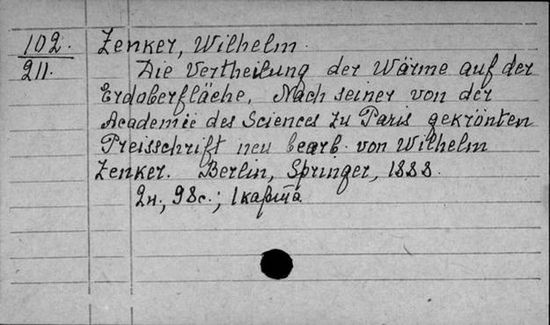 102. Zenker, Wilhelm.
211. Die Vertheilung der Wärme auf der
Erdoberfläche. Nach seiner von der
Academie des Sciences zu Paris gekrönten
Preisschrift neu bearb. von Wilhelm
Zenker. Berlin, Springer, 1888.
2н., 98с.; 1 карта.